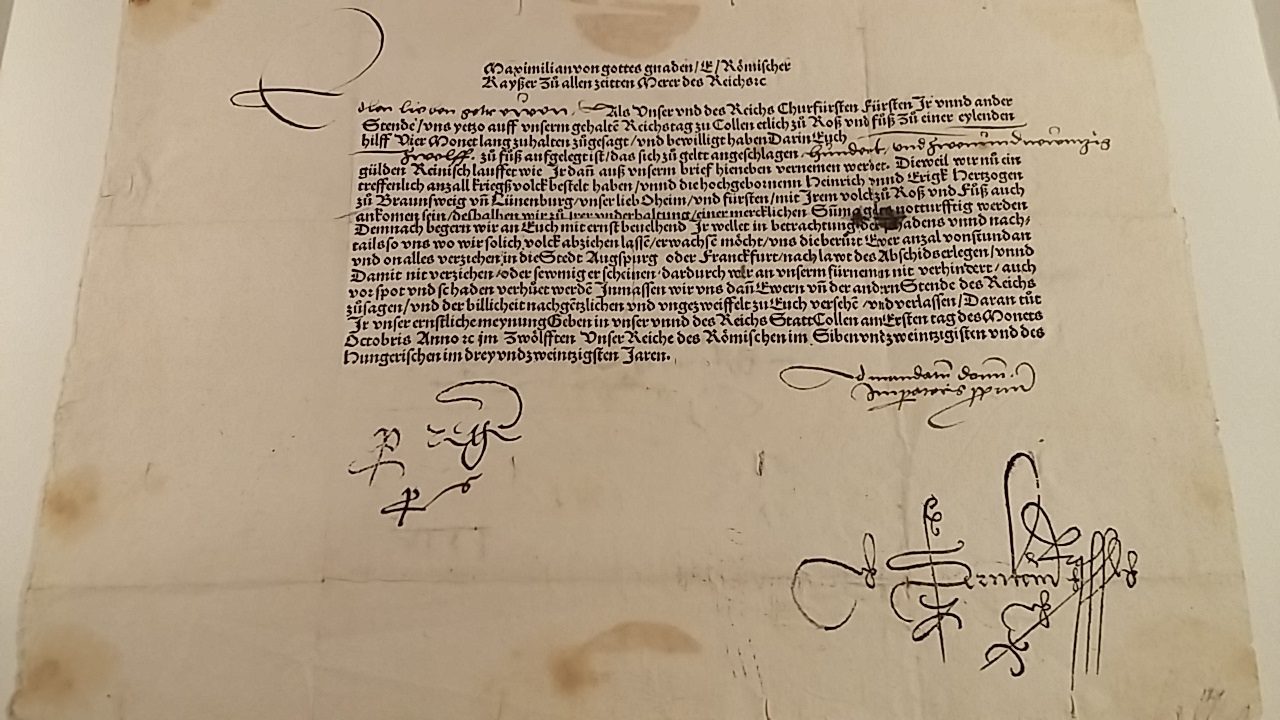 Maximilian von gottes gnaden/E/Römischer
Kayßer Zů allen zeitten Merer des Reichs ꝛc
Als Vnser vnd des Reichs Churfürsten Fürsten Jr vnnd ander
Stende/vns yetzo auff vnserm gehaltē Reichstag zu Collen etlich zů Roß vnd fůß Zů einer eylenden
hilff Vier Monet lang zuhalten zůgesagt/vnd bewilligt haben Darin Euch
Zwolff. zů fůß aufgelegt ist/das sich zů gelt angeschlagen hundert vnd zwenundnewntzig
gülden Reinisch lauffet wie Jr dañ auß vnserm brief hieneben vernemen werdet. Dieweil wir nů ein
treffenlich anzall kriegß volck bestelt haben/vnnd die hochgebornenn Heinrich vnnd Erigk Hertzogen
zů Braunsweig vñ Lünenburg/vnser lieb Oheim/vnd fürsten/mit Jrem volck zů Roß vnd Fůß auch
ankomen sein/deshalben wir zů jrer vnderhaltung/einer mercklichen Sum̄a notturfftig werden
Demnach begern wir an Euch mit ernst beuelhend Jr wellet in betrachtung des schadens vnnd nach⸗
tails so vns wo wir solich volck abziehen lassē/erwachsē möcht/vns die berürt Ewer anzal vonstundan
vnd on alles verziehen in die Stedt Augspurg oder Franckfurt/nach lawt des Abschids erlegen/vnnd
Damit nit verziehen/oder sewmig erscheinen/dardurch wir an vnserm fürnemen nit verhindert/auch
vor spot vnd schaden verhůet werdē Jnmassen wir vns dañ Ewern vñ der andern Stende des Reichs
zůsagen/vnd der billicheit nach gētzlichen vnd vngezweiffelt zů Euch versehē vnd verlassen/Daran tůt
Jr vnser ernstliche meynung Geben in vnser vnnd des Reichs Statt Collen am Ersten tag des Monets
Octobris Anno ꝛc jm Zwölfften Vnser Reiche des Römischen im Siben vnd zweintzigisten vnd des
Hungerischen im drey vnd zweintzigsten Jaren.
Ad mandatū domī
Imperatoris ppriū